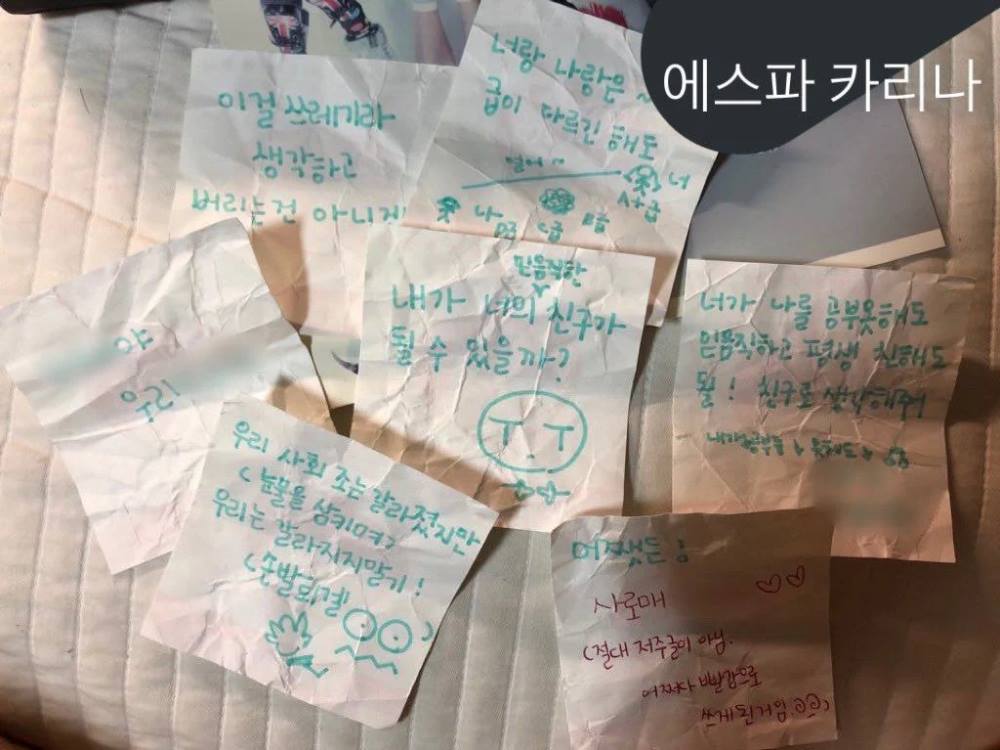 에스파 카리나
이걸 쓰레기라
생각하고
버리는건 아니겠
너랑 나랑은 ~
급이 다르긴 해도
너
나
믿음직한
내가 너의 친구가
될 수 있을까?
너가 나를 공부못해도
믿음직하고 평생 친해도
될! 친구로 생각해줘
야
우리
우리 사회 조는 갈라졌지만
(눈물을 삼키며)
우리는 갈라지지말기!
(손발퇴갤
어쨌든!
사로매
(절대 저주글이 아님.
어쩌다 빨간색으로
쓰게된거임